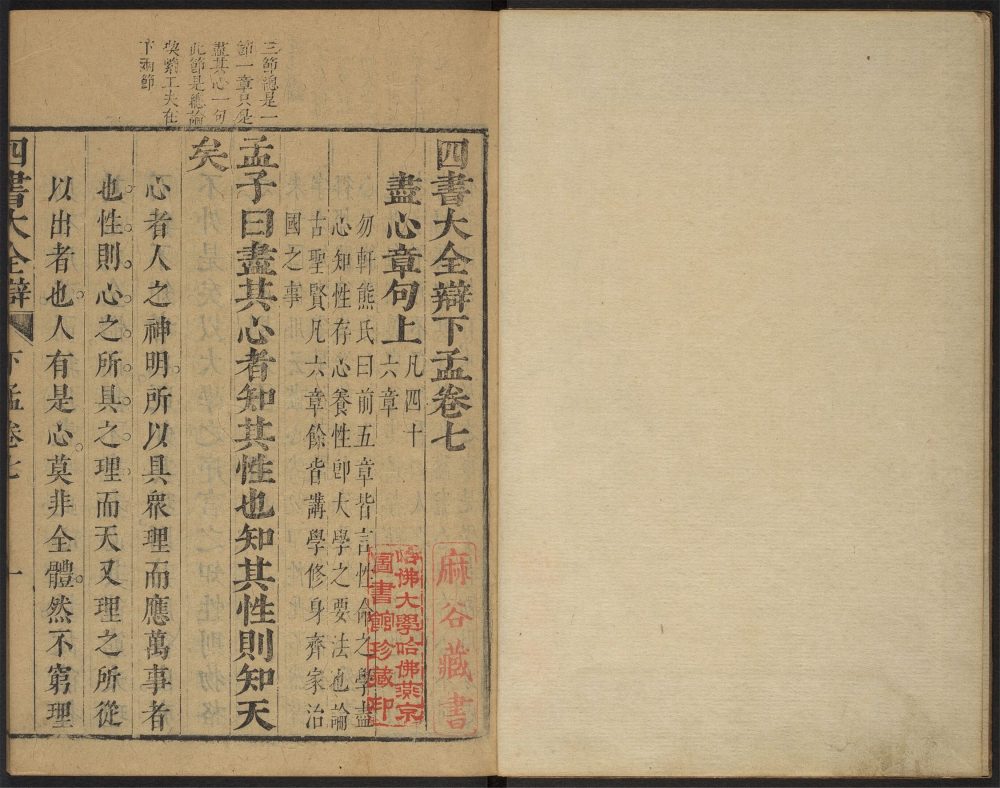 三節總是一
節一章只是
盡其心一句
此節是總論
喫緊工夫在
下兩節
四書大全辯下孟卷七
盡心章句上
凡四十
六章
勿軒熊氏曰前五章皆言性命之學盡
心知性存心養性卽大學之要法也論
古聖賢凡六章餘皆講學修身齊家治
國之事
孟子曰盡其心者知其性也知其性則知天
矣
心者人之神明所以具衆理而應萬事者
也性則心之所具之理而天又理之所從
以出者也人有是心莫非全體然不窮理
四書大全辯 下孟卷七 一
麻谷藏書
哈佛大學哈佛燕京
圖書館珍藏印